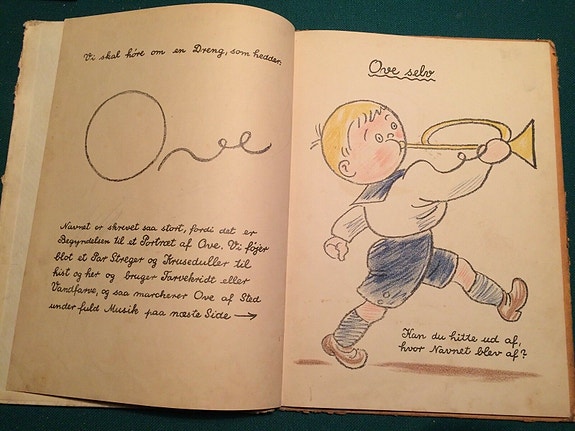 Vi skal høre om en Dreng, som hedder.
Ove
Navnet er skrevet saa stort, fordi det er
Begyndelsen til et Portræt af Ove. Vi føjer
blot et Par Streger og Kruseduller til
hist og her og bruger Farvekridt eller
Vandfarve, og saa marcherer Ove af Sted
under fuld Musik paa næste Side →
Ove selv
Kan du hitte ud af,
hvor Navnet blev af?